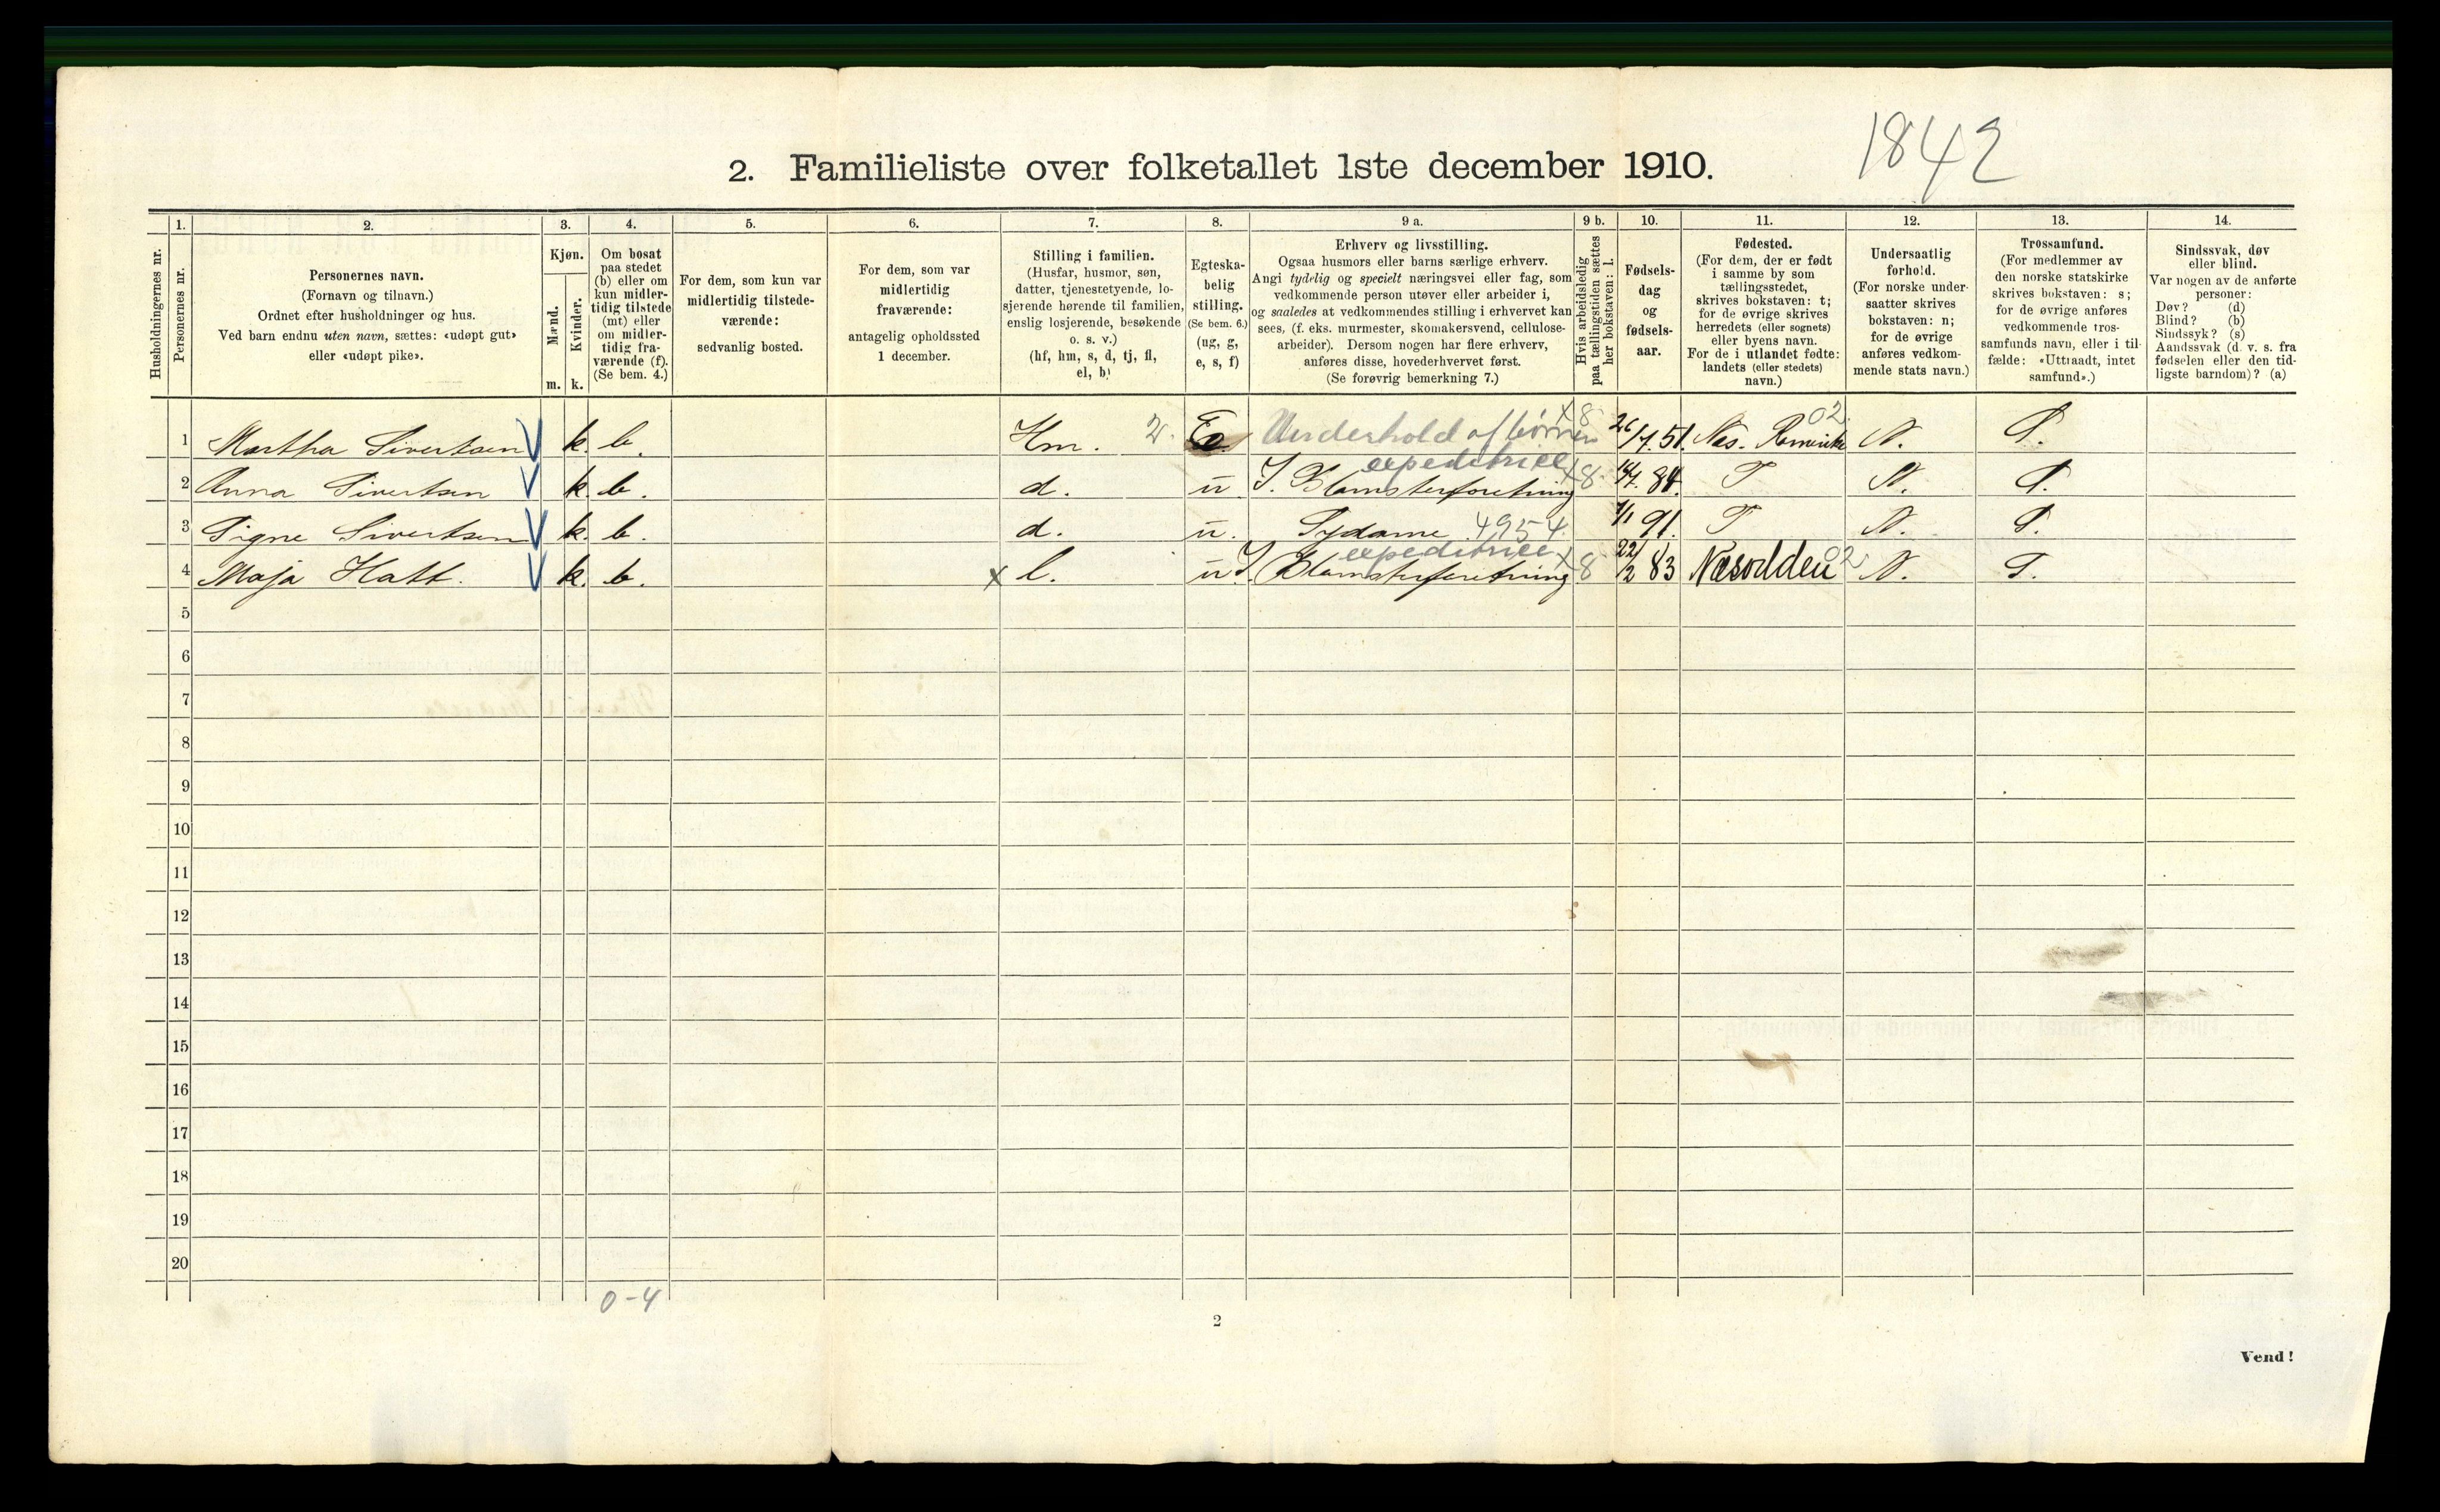 1842
2. Familieliste over folketallet 1ste december 1910.
Husholdningernes nr.
1. Personernes nr.
2.
Personernes navn.
(Fornavn og tilnavn.)
Ordnet efter husholdninger og hus.
Ved barn endnu uten navn, sættes: «udøpt gut»
eller «udøpt pike».
3.
Kjøn.
Mænd. Kvinder.
m. k.
4.
Om bosat
paa stedet
(b) eller om
kun midler-
tidig tilstede
(mt) eller
om midler-
tidig fra-
værende (f).
(Se bem. 4.)
5.
For dem, som kun var
midlertidig tilstede-
værende:
sedvanlig bosted.
6.
For dem, som var
midlertidig
fraværende:
antagelig opholdssted
1 december.
7.
Stilling i familien.
(Husfar, husmor, søn,
datter, tjenestetyende, lo-
sjerende hørende til familien,
enslig losjerende, besøkende
o. s. v.)
(hf, hm, s, d, tj, fl,
el, b)
8.
Egteska-
belig
stilling.
(Se bem. 6.)
(ug, g,
e, s, f)
9 a.
Erhverv og livsstilling.
Ogsaa husmors eller barns særlige erhverv.
Angi tydelig og specielt næringsvei eller fag, som
vedkommende person utøver eller arbeider i,
og saaledes at vedkommendes stilling i erhvervet kan
sees, (f. eks. murmester, skomakersvend, cellulose-
arbeider). Dersom nogen har flere erhverv,
anføres disse, hovederhvervet først.
(Se forøvrig bemerkning 7.)
9 b.
Hvis arbeidsledig
paa tællingstiden sættes
her bokstaven: l.
10.
Fødsels-
dag
og
fødsels-
aar.
11.
Fødested.
(For dem, der er født
i samme by som
tællingsstedet,
skrives bokstaven: t;
for de øvrige skrives
herredets (eller sognets)
eller byens navn.
For de i utlandet fødte:
landets (eller stedets)
navn.)
12.
Undersaatlig
forhold.
(For norske under-
saatter skrives
bokstaven: n;
for de øvrige
anføres vedkom-
mende stats navn.)
13.
Trossamfund.
(For medlemmer av
den norske statskirke
skrives bokstaven: s;
for de øvrige anføres
vedkommende tros-
samfunds navn, eller i til-
fælde: «Uttraadt, intet
samfund».)
14.
Sindssvak, døv
eller blind.
Var nogen av de anførte
personer:
Døv? (d)
Blind? (b)
Sindssyk? (s)
Aandssvak (d. v. s. fra
fødselen eller den tid-
ligste barndom)? (a)
1 Martha Sivertsen k. b. Hm. 2. E Underhold af børnene x8 26/7.51. Nes. Romerike 02 N. S.
2 Anna Sivertsen k. b. d. u. I. Blomsterforetning expeditrice x8 84. T N. S.
3 Signe Sivertsen k. b. d. u. Sydame 4954 1/1 91. T N. S.
4 Maja Hatt. k. b. x l. u. I. Blomsterforetning expeditrice x8 22/2 83 Næsodden 02 N. S.
5
6
7
8
9
10
11
12
13
14
15
16
17
18
19
20
0-4
2
Vend!